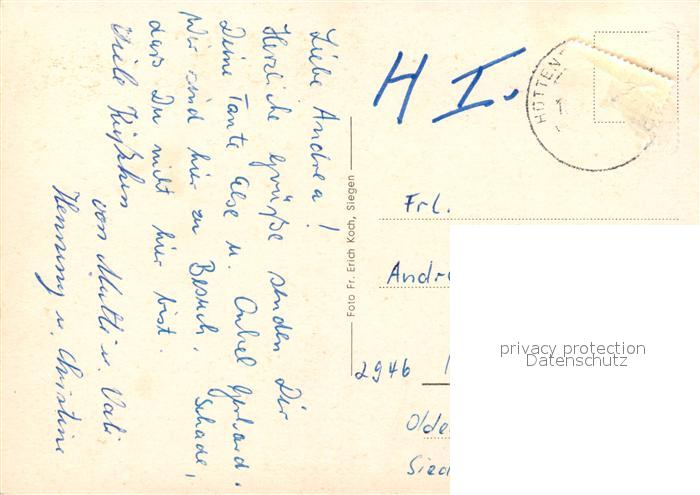 Liebe Andrea!
Herzliche Grüße senden Dir
Deine Tante Else u. Onkel Gerhard.
Wir sind hier zu Besuch. Schade,
daß Du nicht hier bist.
Viele Küßchen
von Mutti u. Vati
Henning u. Christine
Foto Fr. Erich Koch, Siegen
H I.
HÜTTE
Frl.
Andre
2946
Olde
Sied
privacy protection
Datenschutz